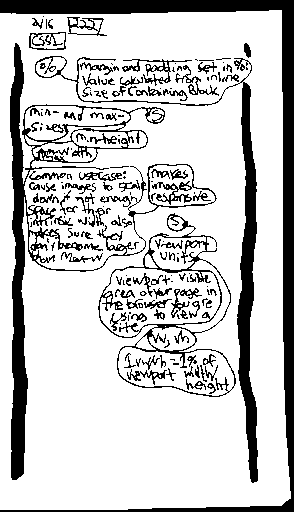 2/16 222
CSS1
%
Margin and Padding set in %:
Value calculated from inline
size of Containing Block
min- and max-
sizes
S
min-height
max-width
Common usecase:
cause images to scale
down if not enough
space for their
intrinsic width also
makes sure they
don't become larger
than
makes
images
responsive
S
Viewport
Units
Viewport: Visible
area of your page in
the browser you are
using to view a
site
vw, vh
1vw/vh = 1% of
viewport width/
height